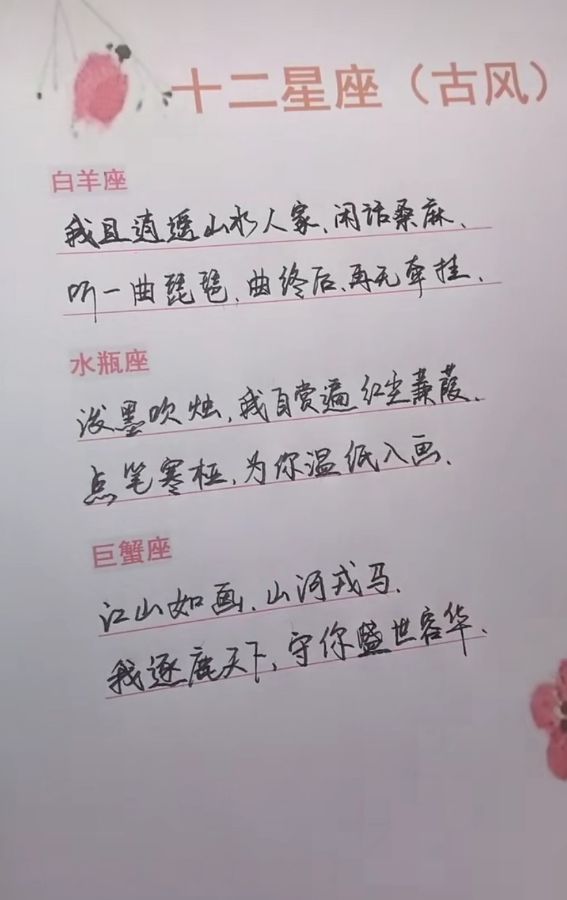 十二星座（古风）
白羊座
我且逍遥山水人家、闲话桑麻、
听一曲琵琶、曲终后、再无牵挂、
水瓶座
泼墨吹烛、我自赏遍红尘蒹葭、
点笔寒桠、为你温纸入画、
巨蟹座
江山如画、山河戎马、
我逐鹿天下、守你盛世容华、